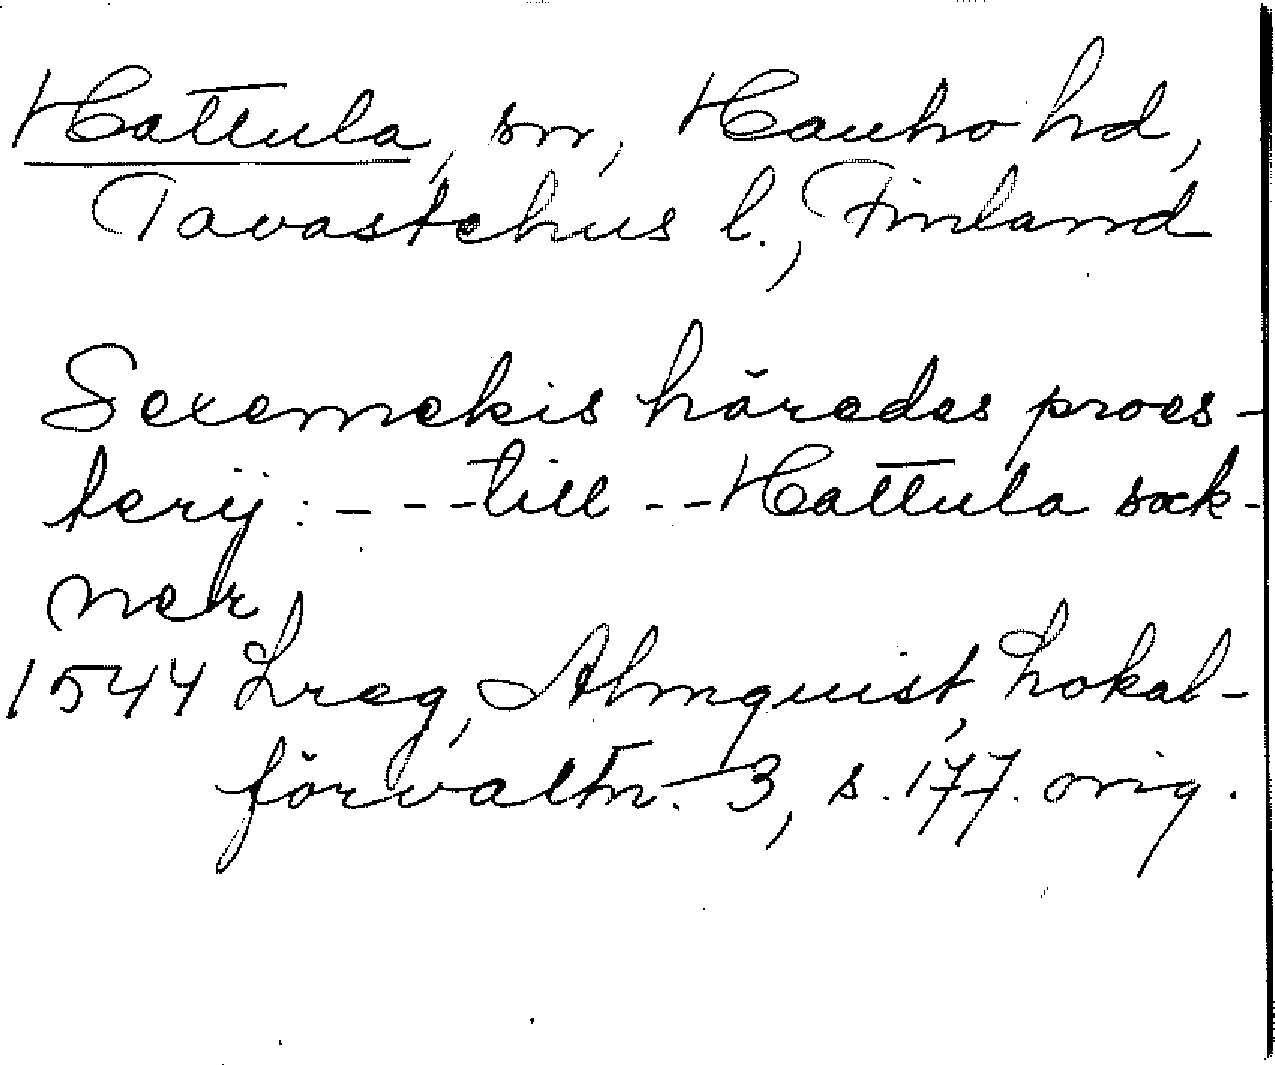 Hattula, sn, Hauho hd,
Tavastehus l., Finland
Sexemekis häredes proes-
terij: - - - till - - Hattula sock-
ner
1544 Lreg, Almquist, Lokal-
förvaltn. 3, s. 177. orig.